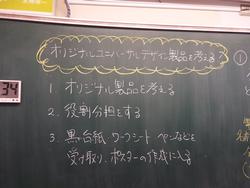 オリジナルユニバーサルデザイン製品を考える
①
1. オリジナル製品を考える
34
2. 役割分担をする
3. 黒台紙 ワークシート ペンなどを
受け取り、ポスターの作成に入る